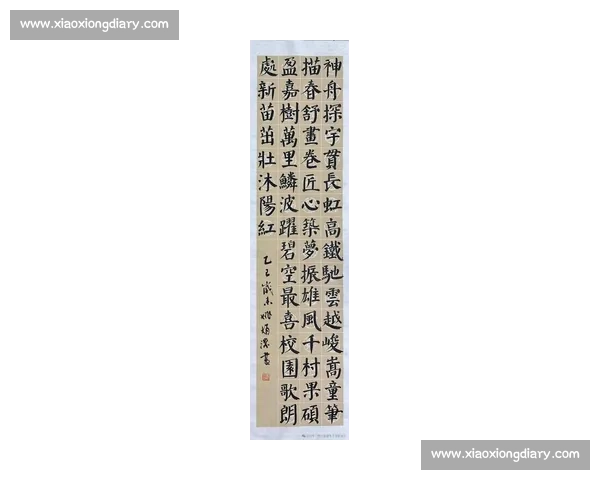 www.xiaoxiongdiary.com
神舟探宇貫長虹高鐵馳雲越峻嵩童筆
描春舒畫卷匠心築夢振雄風千村果碩
盈嘉樹萬里鱗波躍碧空最喜校園歌朗
處新苗茁壯沐陽紅
乙巳歲末書
www.xiaoxiongdiary.com